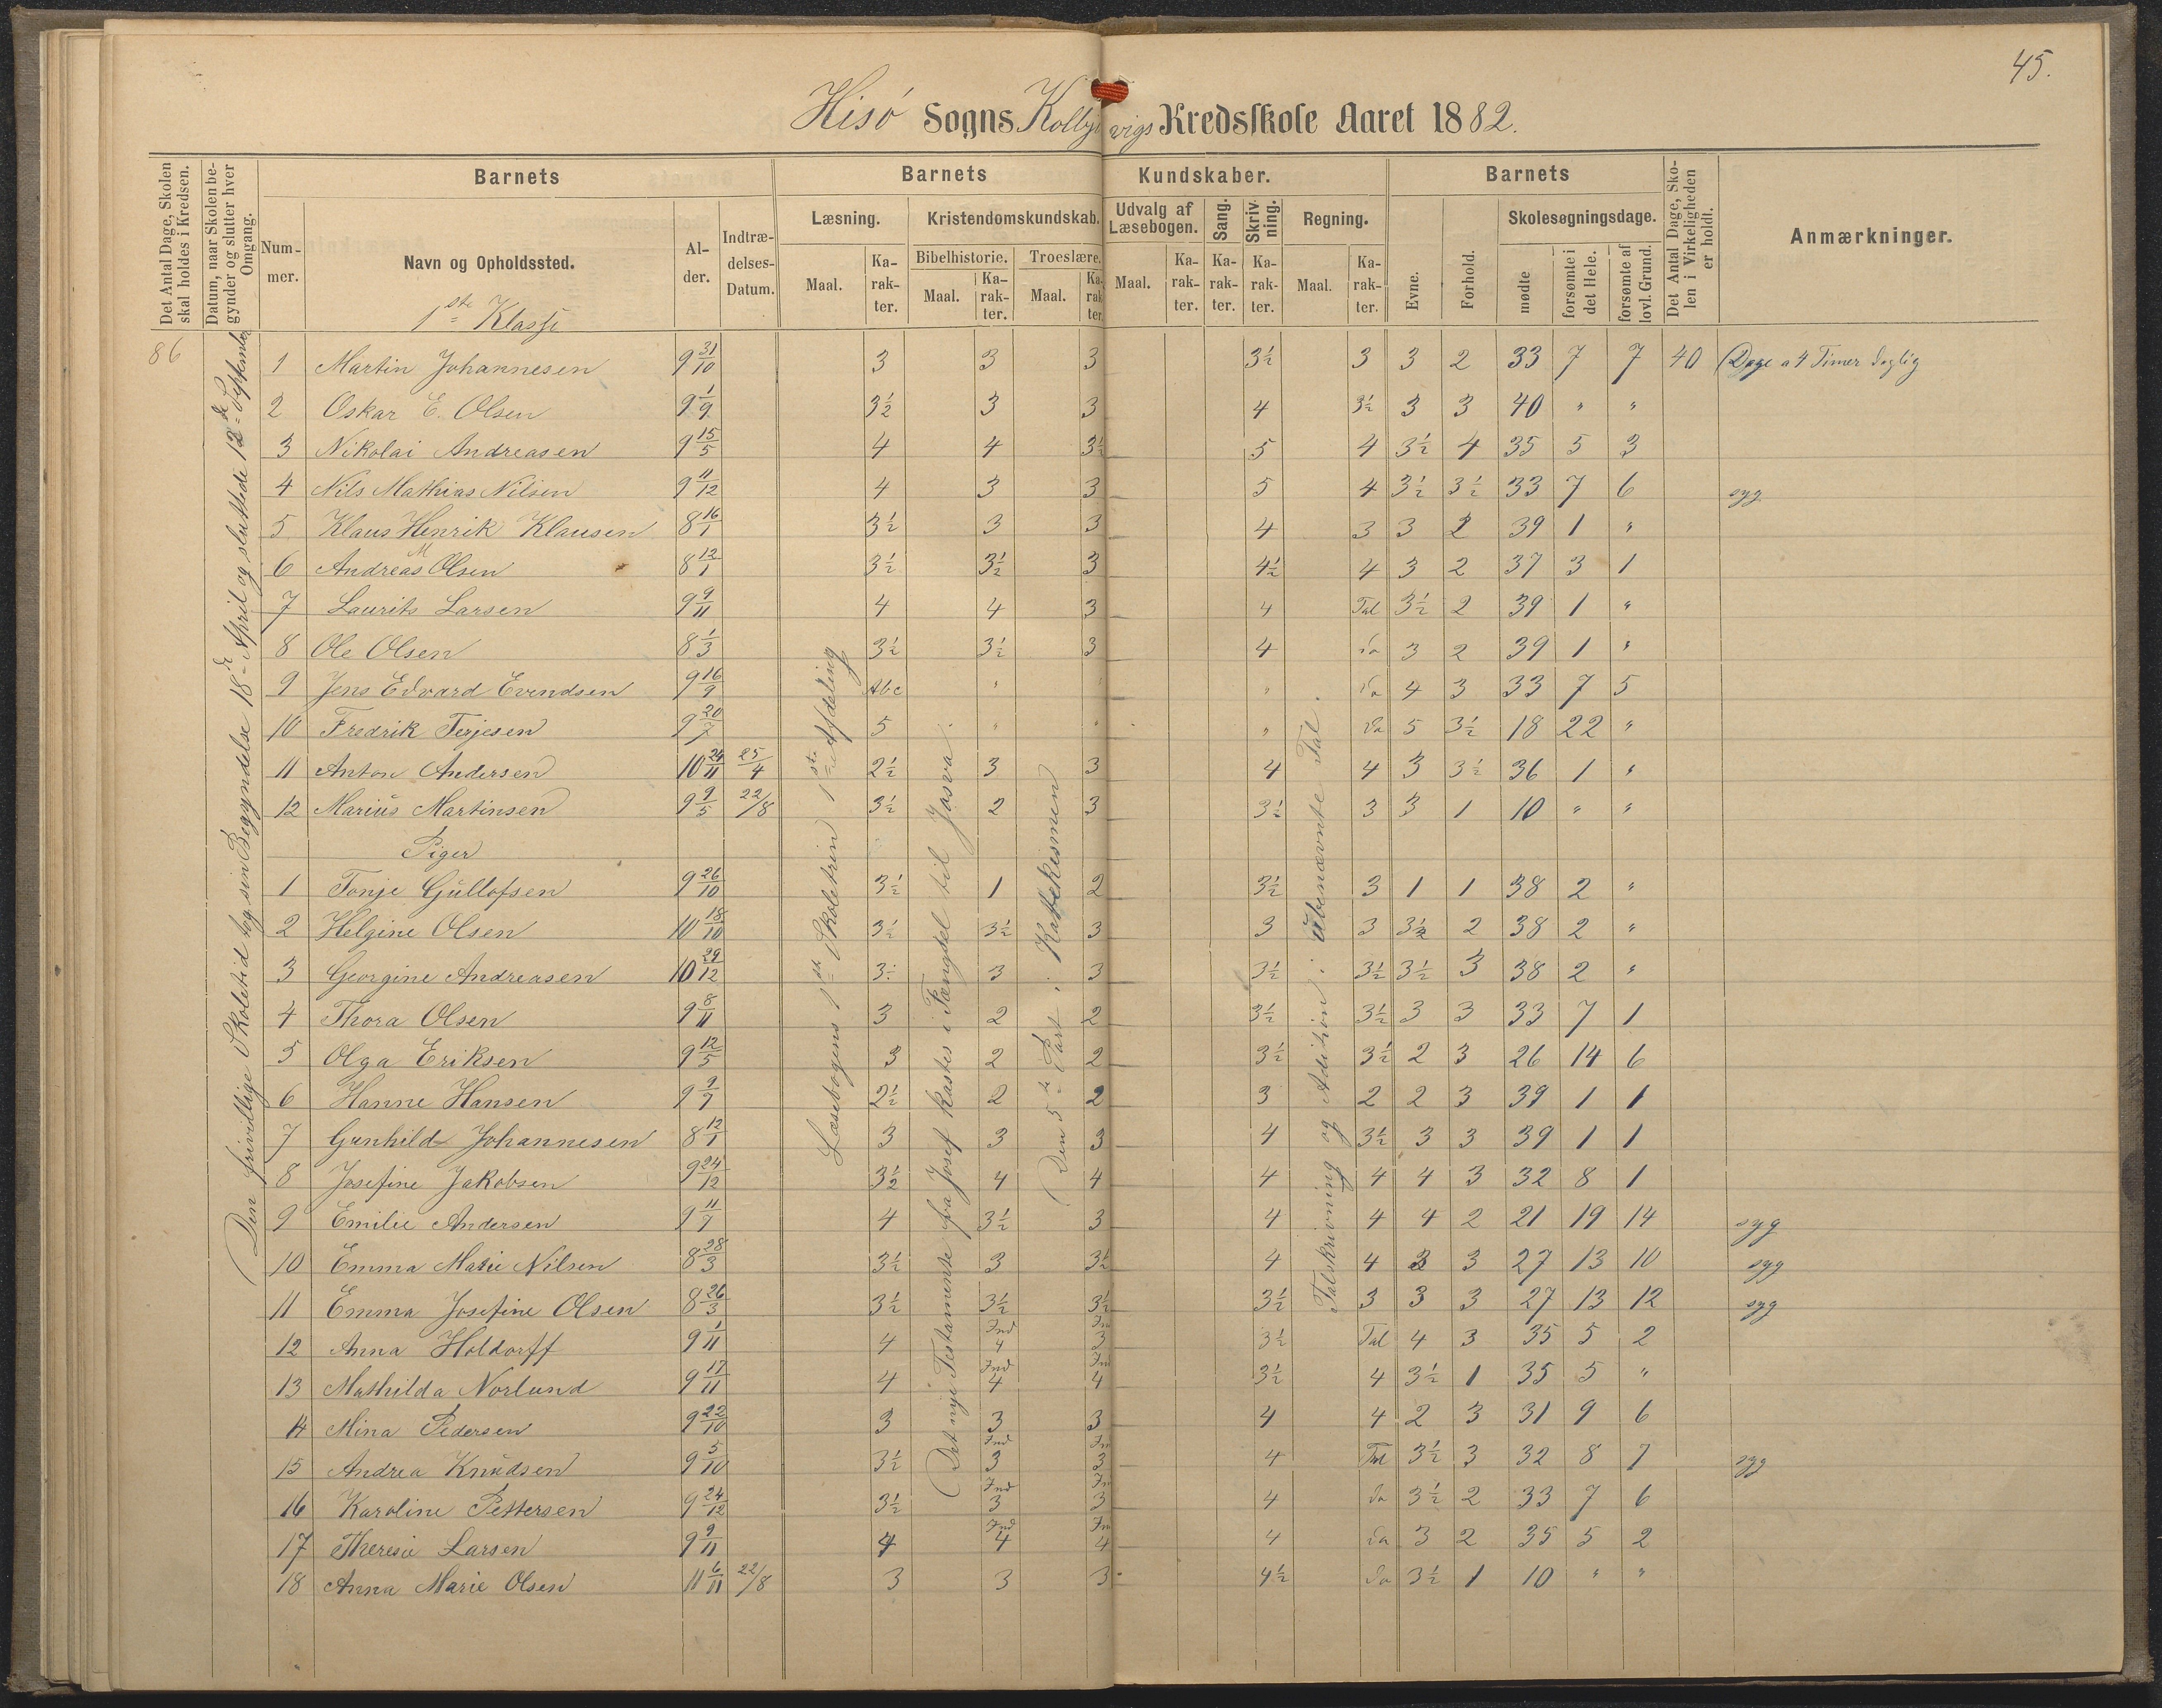 45.
Hisö Sogns Kolbjørnsvigs Kredsskole Aaret 1882.
Det Antal Dage, Skolen skal holdes i Kredsen.
Datum, naar Skolen begynder og slutter hver Omgang.
Barnets
Nummer.
Navn og Opholdssted.
Alder.
Indtrædelses-Datum.
Barnets Kundskaber.
Læsning.
Maal.
Karakter.
Kristendomskundskab.
Bibelhistorie.
Maal.
Karakter.
Troeslære.
Maal.
Karakter.
Udvalg af Læsebogen.
Maal.
Karakter.
Sang.
Karakter.
Skrivning.
Karakter.
Regning.
Maal.
Karakter.
Barnets
Evne.
Forhold.
Skolesøgningsdage.
mødte
forsømte i det Hele.
forsømte af lovl. Grund.
Det Antal Dage, Skolen i Virkeligheden er holdt.
Anmærkninger.
1ste Klasse
86
Den frivillige Skoletid tog sin Begyndelse 18de April og sluttede 12de September
Læsebogens 1ste Skoletrin 1ste Afdeling
Det nye Testamente fra Josef kastes i Fængsel til Josva.
Den 5te Part i Katekismen
Talskrivning og Adition i ubenævnte Tal.
1 Martin Johannesen 9 31/10 3 3 3 3½ 3 3 2 33 7 7 40 Dage a 4 Timer daglig
2 Oskar E. Olsen 9 1/9 3½ 3 3 4 3½ 3 3 40 " "
3 Nikolai Andreasen 9 15/5 4 4 3½ 5 4 3½ 4 35 5 3
4 Nils Mathias Nilsen 9 11/12 4 3 3 5 4 3½ 3½ 33 7 6 syg
5 Klaus Henrik Klausen 8 16/1 3½ 3 3 4 3 3 2 39 1 "
6 Andreas M Olsen 8 12/1 3½ 3½ 3 4½ 4 3 2 37 3 1
7 Laurits Larsen 9 9/11 4 4 3 4 Tal 3½ 2 39 1 "
8 Ole Olsen 8 1/3 3½ 3½ 3 4 do 3 2 39 1 "
9 Jens Edvard Evendsen 9 16/9 Abc " " " do 4 3 33 7 5
10 Fredrik Terjesen 9 20/7 5 " " " do 5 3½ 18 22 "
11 Anton Andersen 10 24/11 25/4 2½ 3 3 4 4 3 3½ 36 1 "
12 Marius Martinsen 9 9/5 22/8 3½ 2 3 3½ 3 3 1 10 " "
Piger
1 Tonje Gullofsen 9 26/10 3½ 1 2 3½ 3 1 1 38 2 "
2 Helgine Olsen 10 18/10 3½ 3½ 3 3 3 3½ 2 38 2 "
3 Georgine Andreasen 10 29/12 3½ 3 3 3½ 3½ 3½ 3 38 2 "
4 Thora Olsen 9 8/11 3 2 2 3½ 3½ 3 3 33 7 1
5 Olga Eriksen 9 12/5 3 2 2 3½ 3½ 2 3 26 14 6
6 Hanne Hansen 9 9/7 2½ 2 2 3 2 2 3 39 1 1
7 Gunhild Johannesen 8 12/1 3 3 3 4 3½ 3 3 39 1 1
8 Josefine Jakobsen 9 24/12 3½ 4 4 4 4 4 3 32 8 1
9 Emilie Andersen 9 11/7 4 3½ 3 4 4 4 2 21 19 14 syg
10 Emma Marie Nilsen 8 28/3 3½ 3 3½ 4 4 3 3 27 13 10 syg
11 Emma Josefine Olsen 8 26/3 3½ 3½ 3½ 3½ 3 3 3 27 13 12 syg
12 Anna Holdorff 9 1/11 4 Ind 4 Ind 3 3½ Tal 4 3 35 5 2
13 Mathilda Norlund 9 17/11 4 Ind 4 Ind 4 3½ 4 3½ 1 35 5 "
14 Mina Pedersen 9 22/10 3 3 3 4 4 2 3 31 9 6
15 Andrea Knudsen 9 5/10 3½ Ind 3 Ind 3 4 Tal 3½ 3 32 8 7 syg
16 Karoline Pettersen 9 24/12 3½ Ind 3 Ind 3 4 do 3½ 2 33 7 6
17 Theresie Larsen 9 9/11 4 Ind 4 Ind 4 4 do 3 2 35 5 2
18 Anna Marie Olsen 11 6/11 22/8 3 3 3 4½ do 3½ 1 10 " "